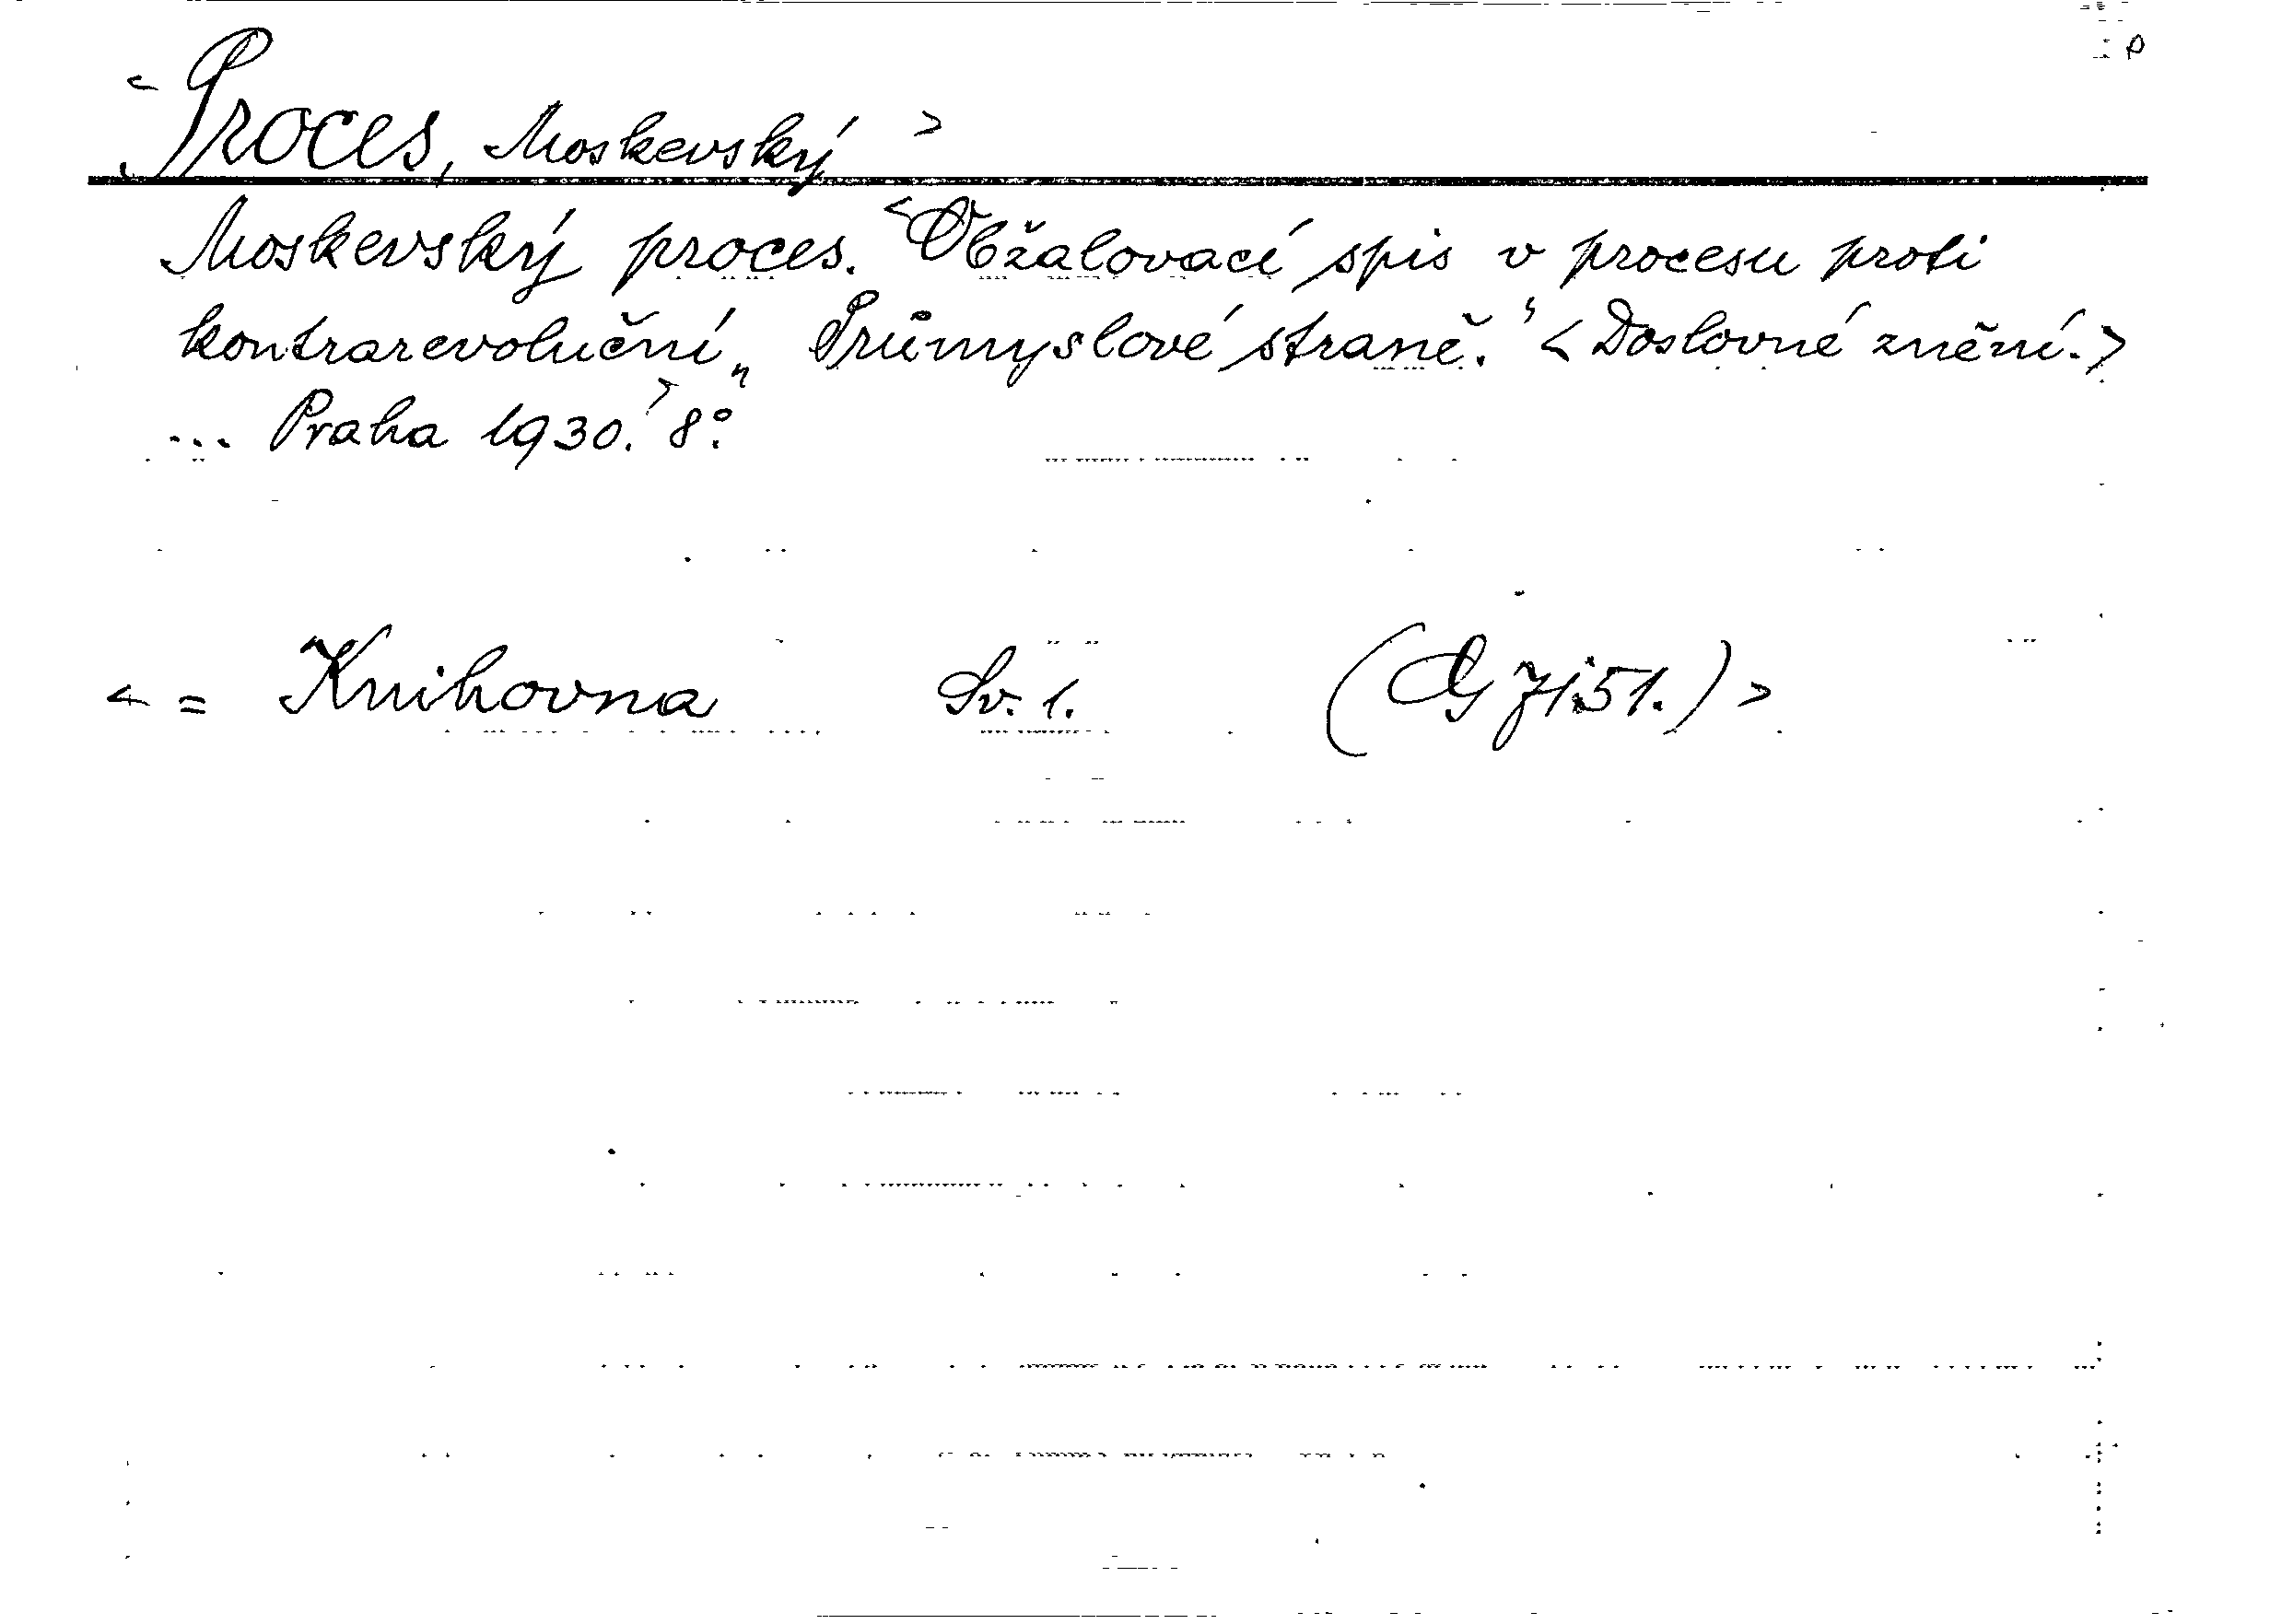 p
< Proces, Moskevský >
Moskevský proces. <Obžalovací spis v procesu proti
kontrarevoluční „Průmyslové straně.“ < Doslovné znění.>
... Praha 1930.> 8°.
< = Knihovna Sv. 1. (G 7151.) >